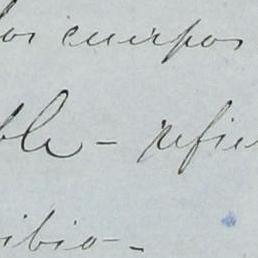 los cuerpos
ble - refie
ibio-